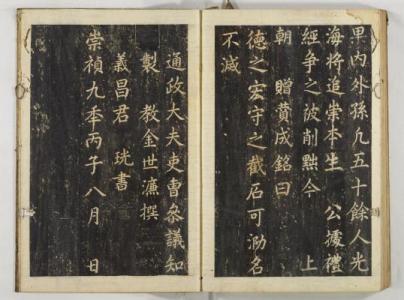 果內外孫凡五十餘人光
海將追崇本生 公據禮
經爭之被削黜今 上
朝 贈賁成銘曰
德之宏守之截石可泐名
不滅
通政大夫吏曹參議知
製 教金世濂撰
義昌君 珖書
崇禎九年丙子八月 日